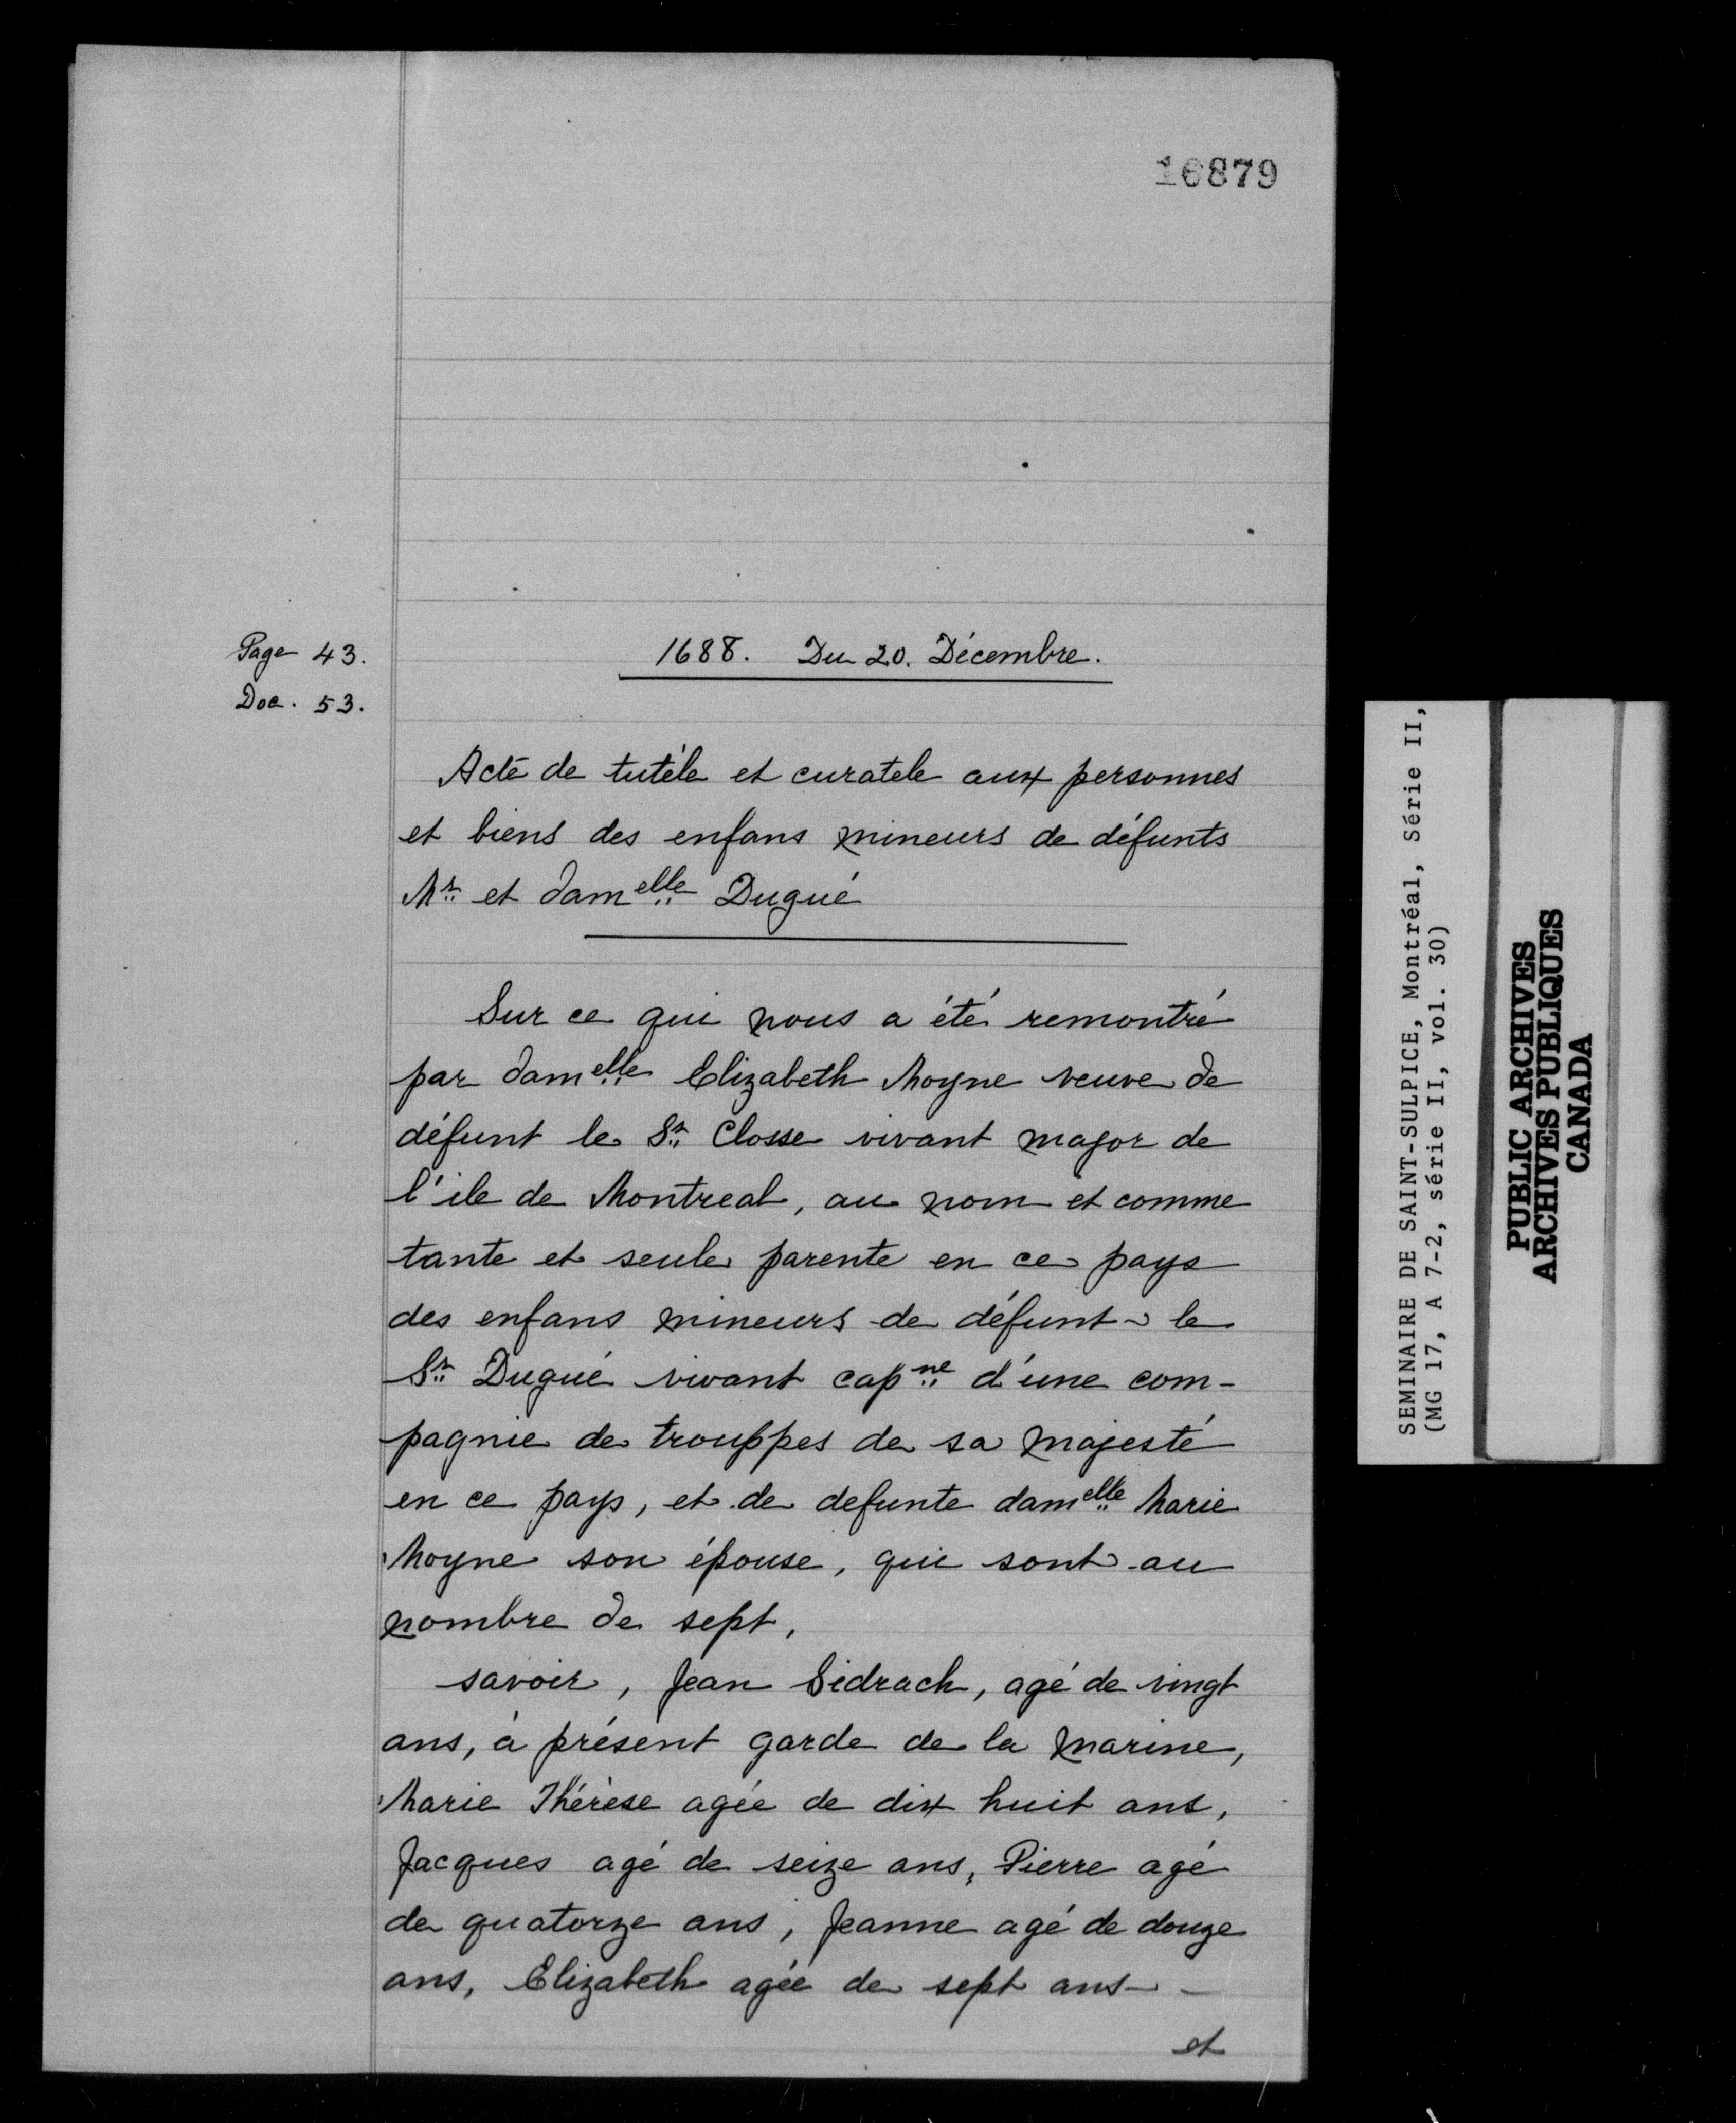 16879
Page 43.
Doc. 53.
1688. Du 20. Décembre.
Acte de tutéle et curatele aux personnes
et biens des enfans mineurs de défunts
Mr et damelle Dugué
Sur ce qui nous a été remontré
par damelle Elizabeth Moyne veuve de
défunt le Sr Closse vivant major de
l'ile de Montreal, au nom et comme
tante et seule parente en ce pays
des enfans mineurs de défunt le
Sr Dugué vivant capne d'une com-
pagnie de trouppes de sa majesté
en ce pays, et de defunte damelle Marie
Moyne son épouse, qui sont au
nombre de sept,
savoir, Jean Sidrach, agé de vingt
ans, à présent garde de la marine,
Marie Thérèse agée de dix huit ans,
Jacques agé de seize ans, Pierre agé
de quatorze ans, Jeanne agé de douze
ans, Elizabeth agée de sept ans -
et
SEMINAIRE DE SAINT-SULPICE, Montréal, Série II,
(MG 17, A 7-2, série II, vol. 30)
PUBLIC ARCHIVES
ARCHIVES PUBLIQUES
CANADA